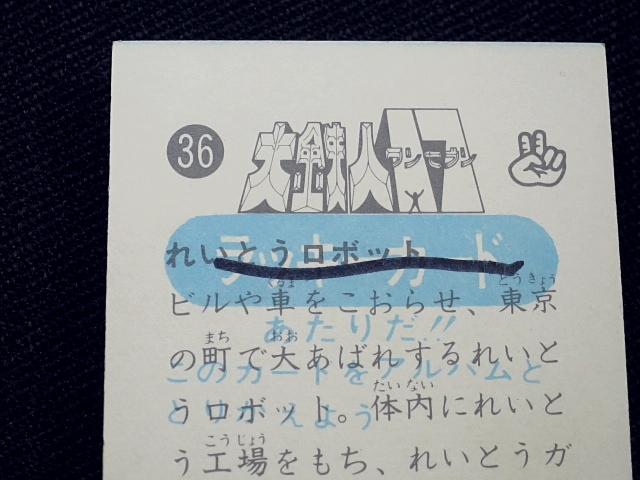 36
大鉄人17
ワンセブン
れいとうロボット
ラッキーカード
ビルや車をこおらせ、東京
くるま とうきょう
あたりだ!!
の町で大あばれするれいと
まち おお
このカードをアルバムと
うロボット。体内にれいと
たいない
とりかえよう
う工場をもち、れいとうガ
こうじょう